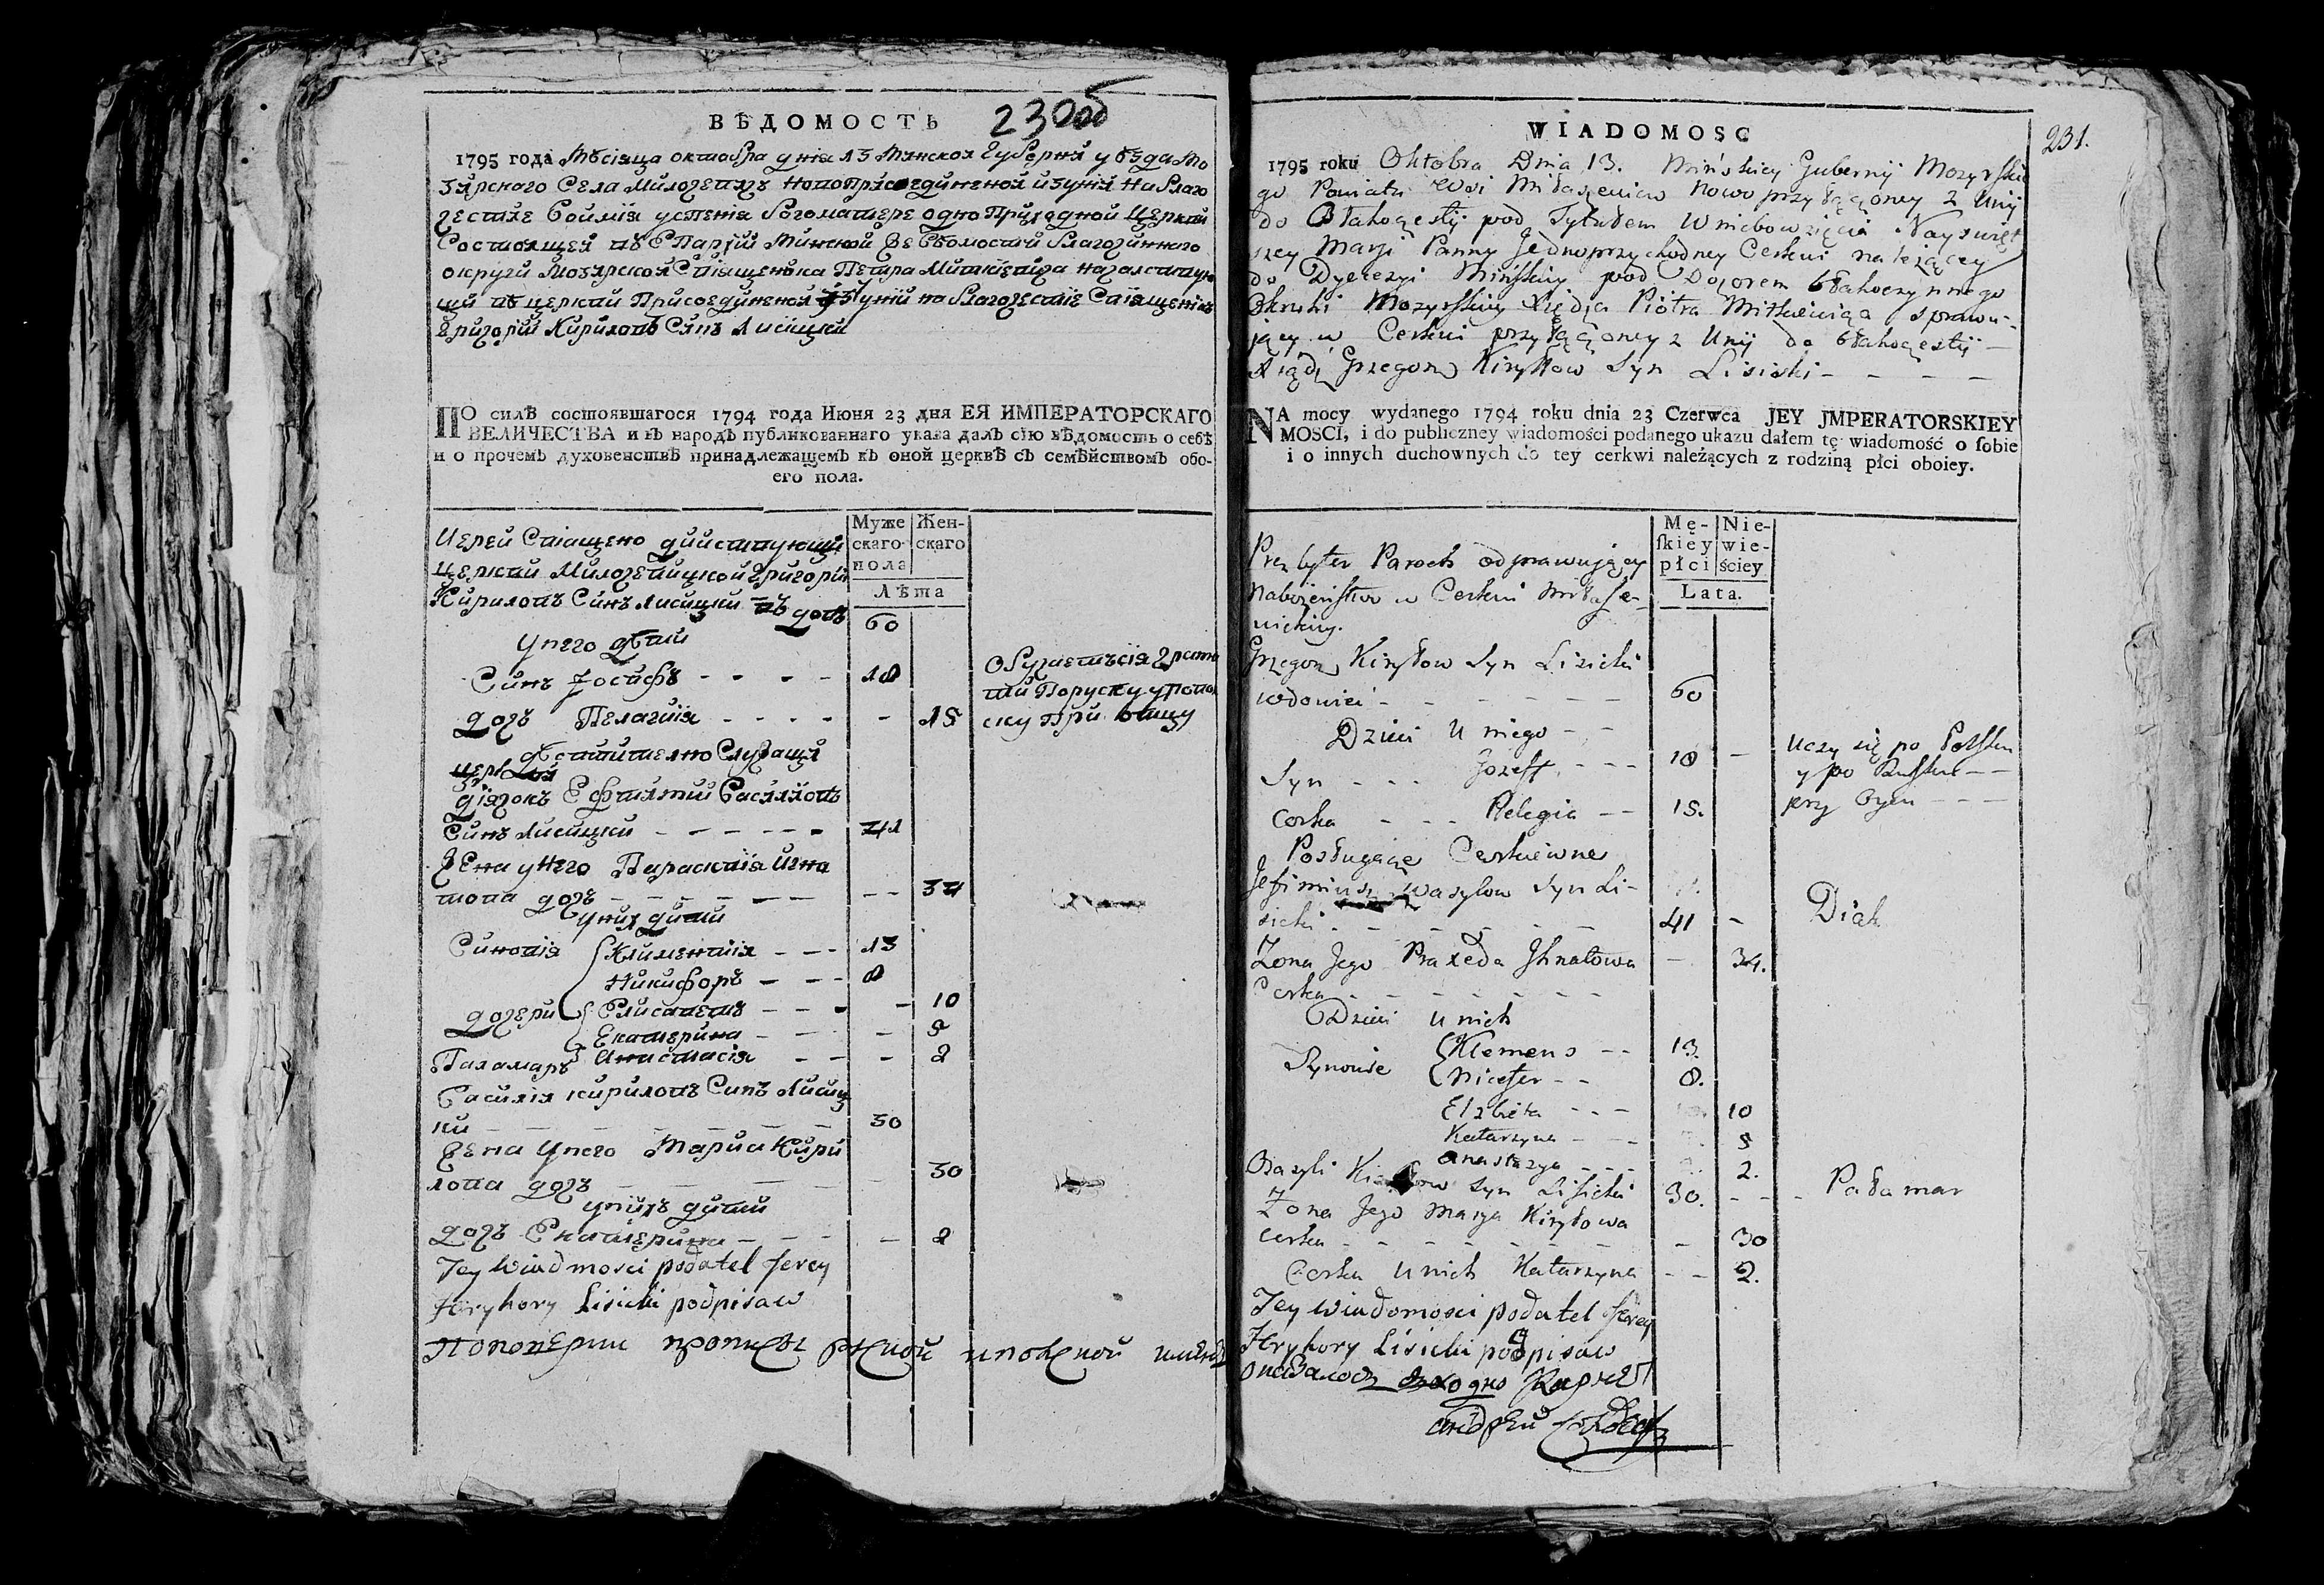 ВѢДОМОСТЬ 230об
1795 года Мѣсіаца октабра дніа 13 Минской Губерніи уѣзда Мо
зирского Села Милошевичъ новоприсоединеной изуніи на Благо
честіе Боймія успеніа Богоматере одно Приходной Церкви
Состоящей въ Епархіи Минской Ве Вѣдомости Благочинного
округи Мозирской Свіащеника Петра Миткѣвича началствую
щій въ церкви Присоединеной изъ Уніи на Благочестіе Свіащеникъ
Григорій Кириловъ Синъ Лисицкій
ПО силѣ состоявшагося 1794 года Июня 23 дня ЕЯ ИМПЕРАТОРСКАГО
ВЕЛИЧЕСТВА и въ народъ публикованнаго указа далъ сію вѣдомость о себѣ
и о прочемъ духовенствѣ принадлежащемъ къ оной церквѣ съ семѣйствомъ обо-
его пола.
Муже Жен-
скаго скаго
пола
Лѣта
Иерей Свіащено дийствующій
церкви Милошевицкой Григорій
Кириловъ Синъ Лисицкій въдовъ 60
Унего дѣти
Синъ Іосифъ - - - - 18 Обучаетъсіа Грамо
Дочъ Пелагіиа - - - - - 15 ску При отцу
Дѣствително Служащіи
церкви
дїячокъ Ефтихтий Василїовъ
Синъ Лисицкий - - - - - - 41
Жена у Него Параскевіа Игна
това дочъ - - - - - - - - 34
У них дити
Синовіа Климентіиа - - - 13
Никифоръ - - - 8
дочери Елисаветъ - - - - 10
Екатерина - - - - 5
Паламаръ Анастасіа - - - 2
Василіа кириловъ Синъ Лисиц
кий - - - - - - 30
Жена Унего Мариа Кири
лова дочъ - - - - - 30
унихъ дити
дочъ Екатерина - - - - 2
Tey Wiadmosci podatel Jerey
Hryhory Lisicki podpisaw
WIADOMOSC 231.
1795 roku Oktobra Dnia 13. Mińskiey Gubernij Mozyrskie
go Powiatu Wsi Miłaszewicw nowo przyłączoney z Unij
do Błahoczestij pod Tytułem Wniebowzięcia Nayświęt
szey Maryi Panny Jednoprzychodney Cerkwi należącey
do Dyecezyi Mińskiey pod Dozorem błahoczynnego
Okruhi Mozyrskiey Xiędza Piotra Mitkiewicza sprawu-
jący w Cerkwi przyłączoney z Unij do błahoczestij -
Xiądz Grzegorz Kiryłłow Syn Lisicki - - - -
NA mocy wydanego 1794 roku dnia 23 Czerwca JEY JMPERATORSKIEY
MOSCI, i do publiczney wiadomości podanego ukazu dałem tę wiadomość o sobie
i o innych duchownych do tey cerkwi należących z rodziną płci oboiey.
Mę- Nie-
skiey wie-
płci ściey
Lata.
Prezbyter Paroch odprawujący
Nabożeństwo w Cerkwi Miłasze-
wickiey.
Grzegorz Kiryłow Syn Lisicki
wdowiec - - - - - - 60
Dzieci U niego - -
Syn - - - Jozeff - - - 18 - Uczy się po Polsku
y po Rusku - -
Corka - - - Pelegia - - 15. przy Oycu - - -
Posługacze Cerkiewne
Jefimiusz Wasylow Syn Li-
sicki - - - - - - 41 - Diak
Zona Jego Praxeda Ihnatowa - 34.
Corka - - - - - - -
Dzieci U nich
Synowie Klemens - - 13.
Nicefer - - 8.
Elzbieta - - - 10
Katarzyna - - - 5
Anastazya - - - 2.
Bazyli Kiryłow Syn Lisicki 30. - - - Pałamar
Zona Jego Marya Kiryłowa
Corka - - - - - - - - 30
Corka U nich Katarzyna - - 2.
Tey Wiadomosci podatel Jerey
Hryhory Lisicki podpisaw